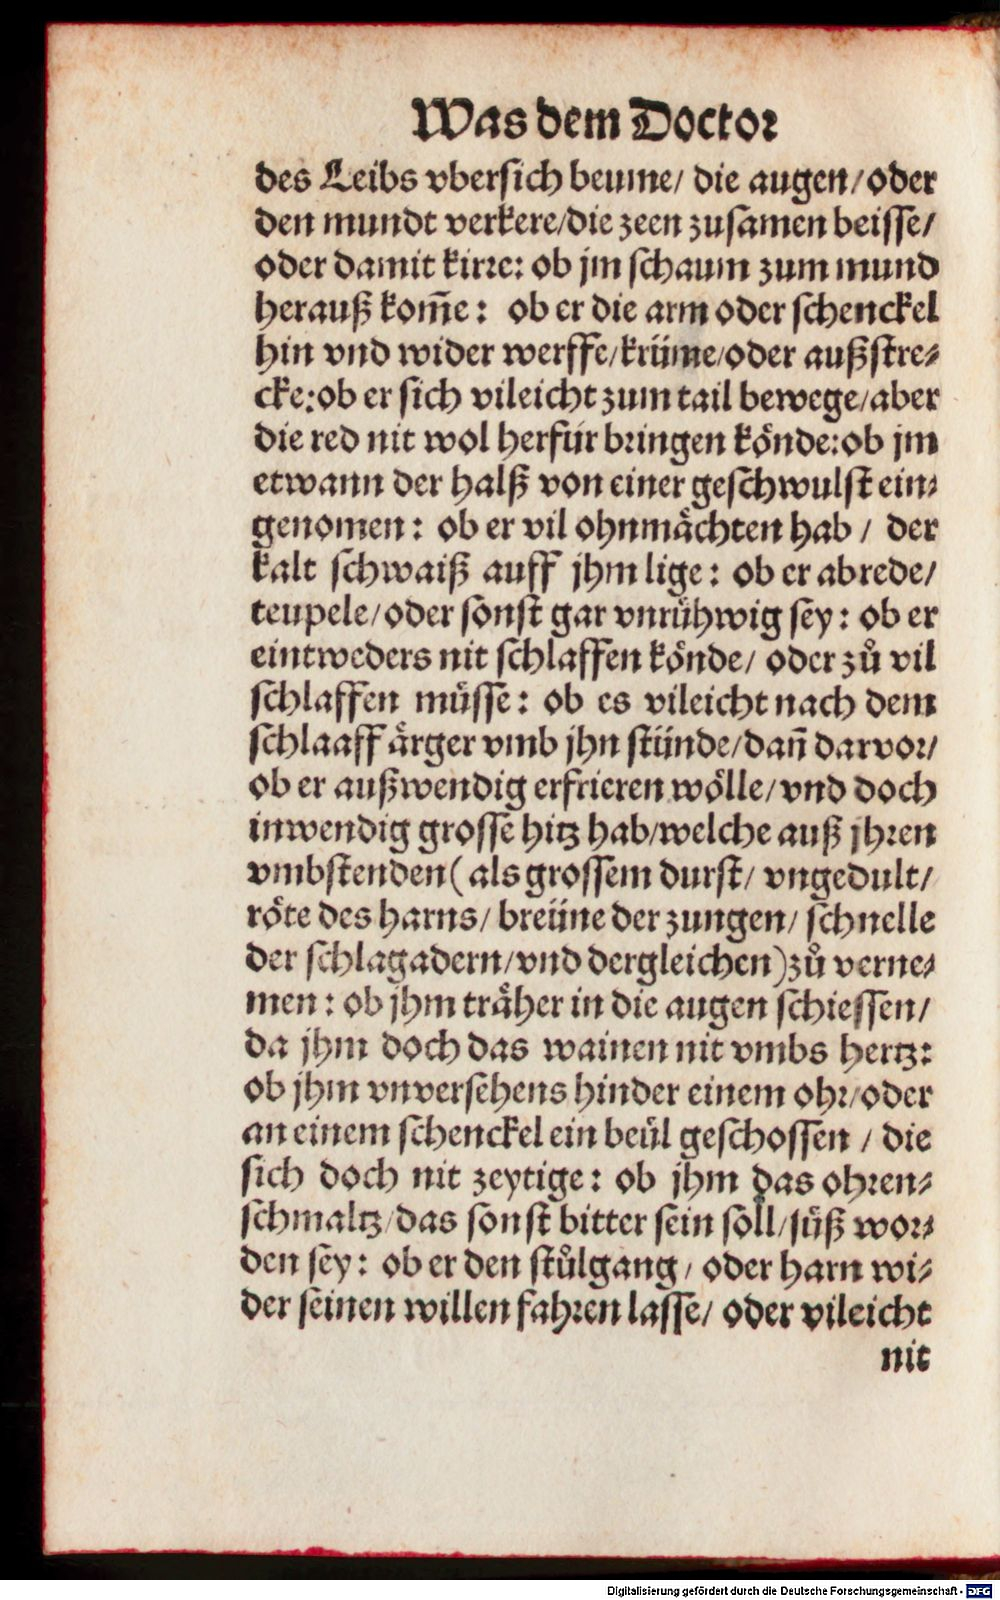 Was dem Doctor
des Leibs vbersich beume/ die augen/oder
den mundt verkere/die zeen zusamen beisse/
oder damit kirre: ob jm schaum zum mund
herauß kom̃e: ob er die arm oder schenckel
hin vnd wider werffe/krüme/oder außstre⸗
cke:ob er sich vileicht zum tail bewege/aber
die red nit wol herfür bringen könde:ob jm
etwann der halß von einer geschwulst ein⸗
genomen: ob er vil ohnmächten hab / der
kalt schwaiß auff jhm lige: ob er abrede/
teupele/oder sonst gar vnrühwig sey: ob er
eintweders nit schlaffen könde/ oder zů vil
schlaffen müsse: ob es vileicht nach dem
schlaaff ärger vmb jhn stünde/dañ darvor/
ob er außwendig erfrieren wölle/vnd doch
inwendig grosse hitz hab/welche auß jhren
vmbstenden (als grossem durst/ vngedult/
röte des harns/ breüne der zungen/ schnelle
der schlagadern/vnd dergleichen)zů verne⸗
men: ob jhm träher in die augen schiessen/
da jhm doch das wainen nit vmbs hertz:
ob jhm vnversehens hinder einem ohr/oder
an einem schenckel ein beül geschossen / die
sich doch nit zeytige: ob jhm das ohren⸗
schmaltz/das sonst bitter sein soll/süß wor⸗
den sey: ob er den stůlgang / oder harn wi⸗
der seinen willen fahren lasse/ oder vileicht
nit
Digitalisierung gefördert durch die Deutsche Forschungsgemeinschaft - DFG